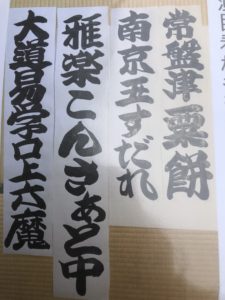 常盤津粟餅
南京玉すだれ
雅楽こんさぁと中
大道易学口上六魔